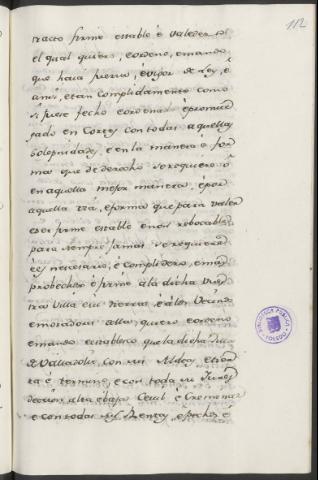 112
tracto firme estable é valedero
el qual quiero, é ordeno, é mando
que haia fuerza, é vigor de Ley, é
ansi, é tan complidamente como
si fuese fecho é ordenado é promul
gado en Cortes con todas aquellas
solepnidades, é en la manera é for
ma que de derecho se requiere ó
en aquella mejor manera, é por
aquella via, é forma que para valer
é ser firme estable é non rebocable
para siempre jamas se requiera
é es necesario, é complidero, é mas
probechoso é firme á la dicha Vues
tra Villa é su tierra, é á los Vecinos
é moradores della, quiero é ordeno
é mando é establezco que la dicha Villa
de Valladolid, con sus Aldeas, é tier
ra é termino, é con toda su Juris
dicción alta é baja Cevil é Creminal
é con todas sus Rentas, é pechos é
BIBLIOTECA PUBLICA
TOLEDO